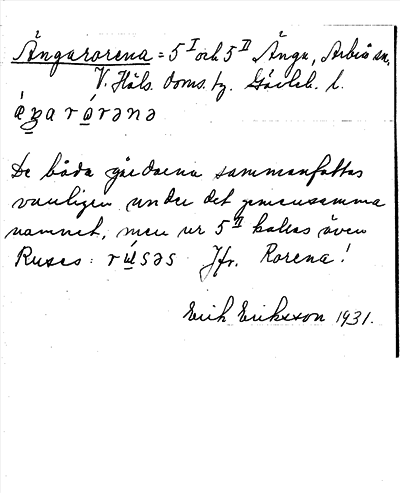 Ängarorena = 5 I och 5 II Änga, Arbrå sn,
V. Häls. Doms. hg. Gävleb. l.
ä́ŋarȯ́rəna
De båda gårdarna sammanfattas
vanligen under det gemensamma
namnet, men nr 5 II kallas även
Ruses: rúsəs Jfr. Rorena!
Erik Eriksson 1931.